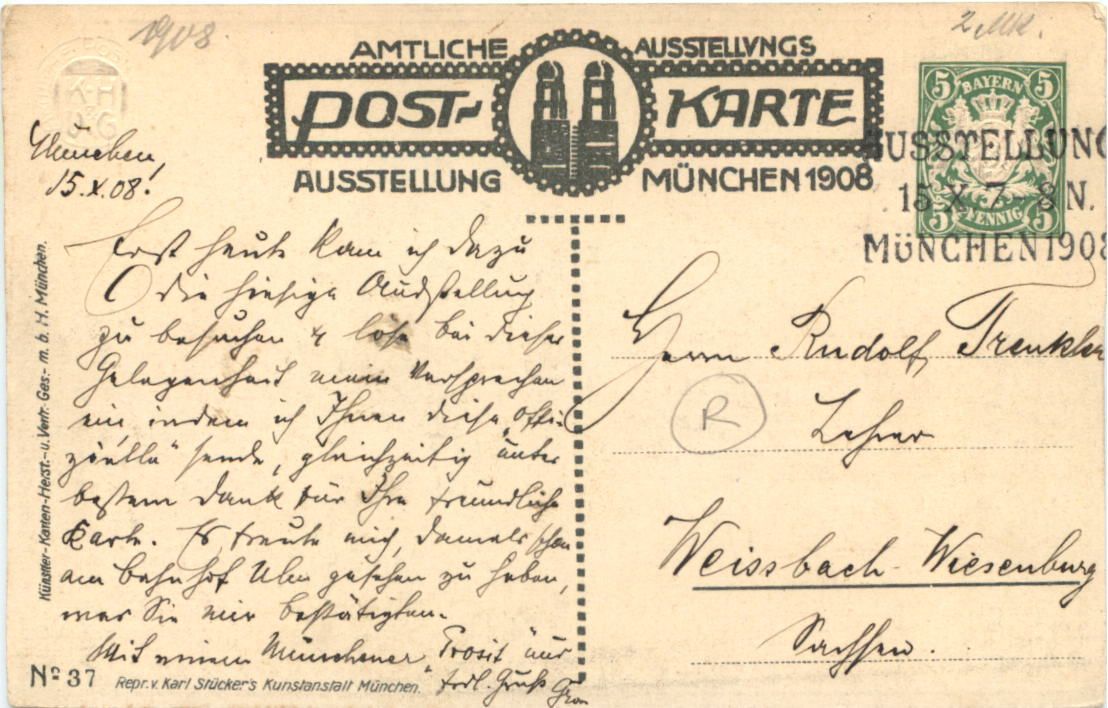 1908.
2 Mk.
AMTLICHE AUSSTELLVNGS
POST- KARTE
AUSSTELLUNG MÜNCHEN 1908
K-H
V-G
5 BAYERN 5
5 PFENNIG 5
AUSSTELLUNG
15 X 7-8 N.
MÜNCHEN 1908
München,
15.X.08.
Erst heute kam ich dazu
die hiesige Ausstellung
zu besuchen & löse bei dieser
Gelegenheit mein Versprechen
ein indem ich Ihnen diese „offi-
zielle“ sende, gleichzeitig unter
bestem Dank für Ihre freundliche
Karte. Es freute mich, damals schon
am Bahnhof Ulm gesehen zu haben,
was Sie mir bestätigten.
Mit einem Münchener „Prosit“ und
frdl. Gruß
Herrn Rudolf Trenkler
R
Lehrer
Weissbach-Wiesenburg
Sachsen.
Künstler-Karten-Herst.- u. Vertr. Ges. m. b. H. München.
No 37 Repr. v. Karl Stücker's Kunstanstalt München.